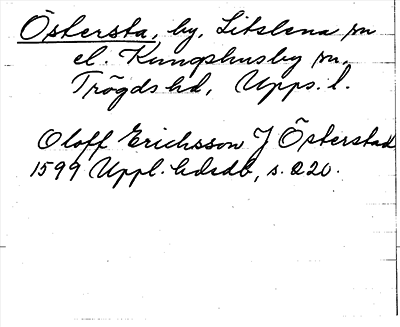 Östersta, by, Litslena sn
el. Kungshusby sn,
Trögds hd, Upps. l.
Oloff Erichsson J Österstad
1599 Uppl. hdsdb, s. 220.